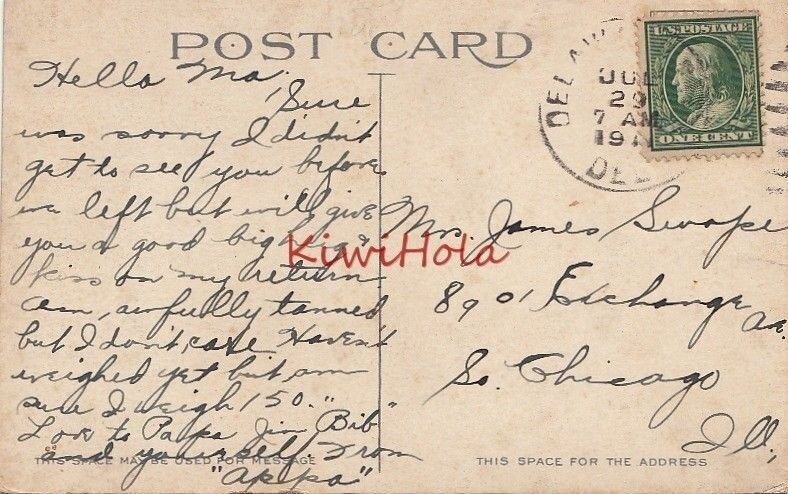 POST CARD
Hello Ma.
Sure
was sorry I didn't
get to see you before
we left but will give
you a good big big
kiss on my return
am, awfully tanned
but I don't, care Haven't
weighed yet but am
sure I weigh 150.
Love to Papa Jim "Bib"
and yourself. From
"Appa"
THIS SPACE MAY BE USED FOR MESSAGE
U.S. POSTAGE
ONE CENT
JUL
29
7 AM
191
DEL
Mrs. James Swope
8901 Exchange Av.
So. Chicago
Ill,
THIS SPACE FOR THE ADDRESS
KiwiHola